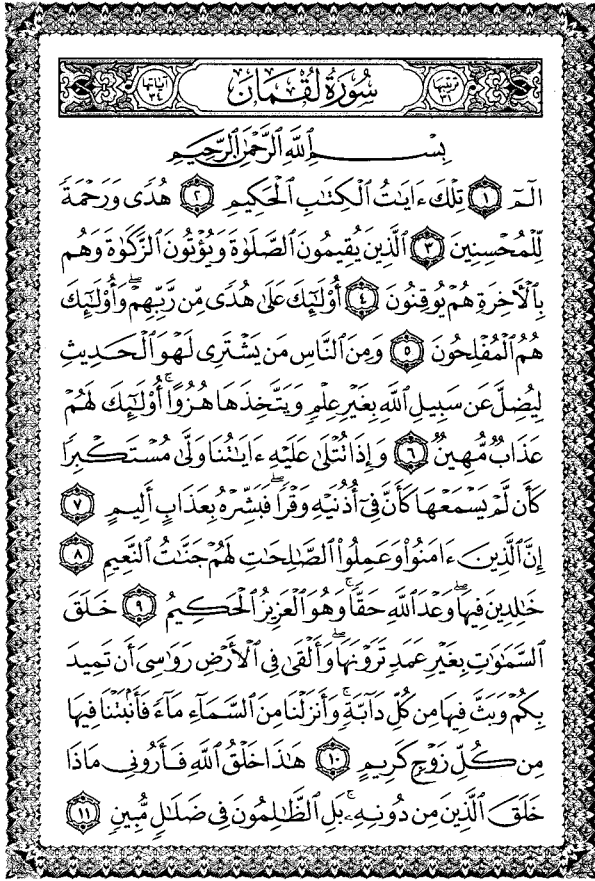 ترتيبها ٣١ سُورَةُ لُقْمَان آياتها ٣٤
بِسْمِ ٱللَّهِ ٱلرَّحْمَٰنِ ٱلرَّحِيمِ
الٓمٓ ١ تِلْكَ ءَايَٰتُ ٱلْكِتَٰبِ ٱلْحَكِيمِ ٢ هُدًى وَرَحْمَةً
لِّلْمُحْسِنِينَ ٣ ٱلَّذِينَ يُقِيمُونَ ٱلصَّلَوٰةَ وَيُؤْتُونَ ٱلزَّكَوٰةَ وَهُم
بِٱلْءَاخِرَةِ هُمْ يُوقِنُونَ ٤ أُو۟لَٰٓئِكَ عَلَىٰ هُدًى مِّن رَّبِّهِمْ ۖ وَأُو۟لَٰٓئِكَ
هُمُ ٱلْمُفْلِحُونَ ٥ وَمِنَ ٱلنَّاسِ مَن يَشْتَرِى لَهْوَ ٱلْحَدِيثِ
لِيُضِلَّ عَن سَبِيلِ ٱللَّهِ بِغَيْرِ عِلْمٍ وَيَتَّخِذَهَا هُزُوًا ۚ أُو۟لَٰٓئِكَ لَهُمْ
عَذَابٌ مُّهِينٌ ٦ وَإِذَا تُتْلَىٰ عَلَيْهِ ءَايَٰتُنَا وَلَّىٰ مُسْتَكْبِرًا
كَأَن لَّمْ يَسْمَعْهَا كَأَنَّ فِىٓ أُذُنَيْهِ وَقْرًا ۖ فَبَشِّرْهُ بِعَذَابٍ أَلِيمٍ ٧
إِنَّ ٱلَّذِينَ ءَامَنُوا۟ وَعَمِلُوا۟ ٱلصَّٰلِحَٰتِ لَهُمْ جَنَّٰتُ ٱلنَّعِيمِ ٨
خَٰلِدِينَ فِيهَا ۖ وَعْدَ ٱللَّهِ حَقًّا ۚ وَهُوَ ٱلْعَزِيزُ ٱلْحَكِيمُ ٩ خَلَقَ
ٱلسَّمَٰوَٰتِ بِغَيْرِ عَمَدٍ تَرَوْنَهَا ۖ وَأَلْقَىٰ فِى ٱلْأَرْضِ رَوَٰسِىَ أَن تَمِيدَ
بِكُمْ وَبَثَّ فِيهَا مِن كُلِّ دَآبَّةٍ ۚ وَأَنزَلْنَا مِنَ ٱلسَّمَآءِ مَآءً فَأَنۢبَتْنَا فِيهَا
مِن كُلِّ زَوْجٍ كَرِيمٍ ١٠ هَٰذَا خَلْقُ ٱللَّهِ فَأَرُونِى مَاذَا
خَلَقَ ٱلَّذِينَ مِن دُونِهِۦ ۚ بَلِ ٱلظَّٰلِمُونَ فِى ضَلَٰلٍ مُّبِينٍ ١١